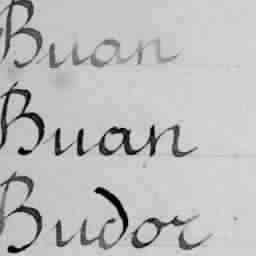 Buan
Buan
Budor